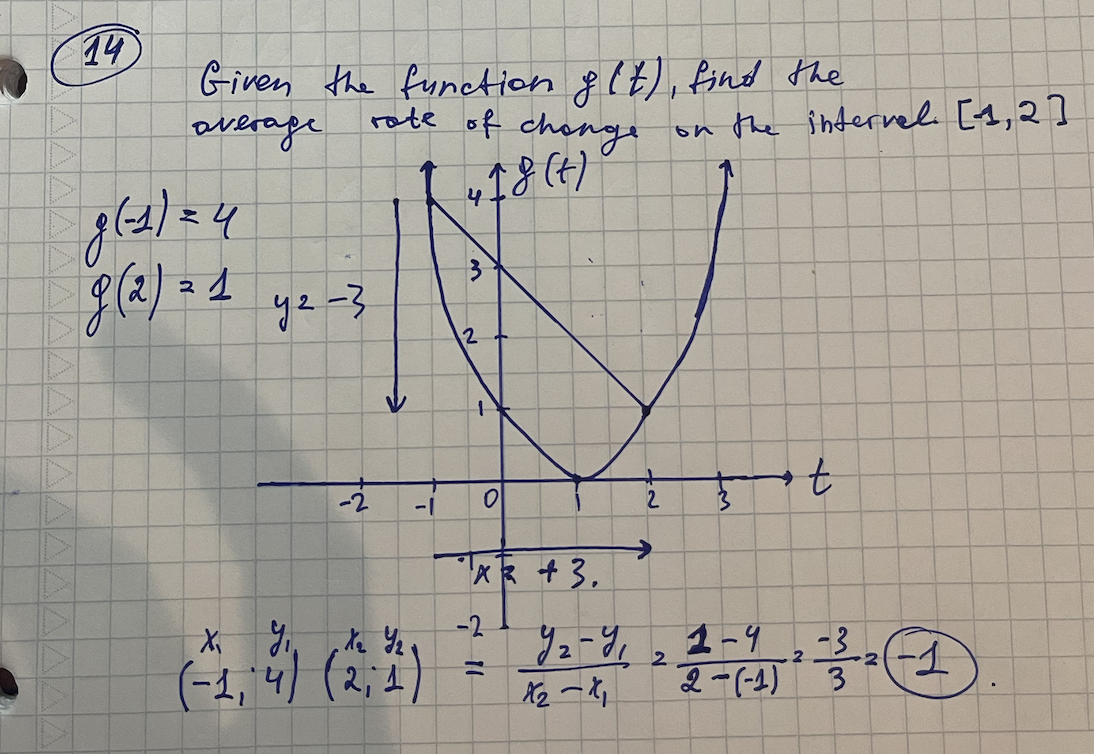 14
Given the function g(t), find the
average rate of change on the interval [-1, 2]
g(-1) = 4
g(2) = 1
y = -3
g(t)
4
3
2
1
-2 -1 0 1 2 3 t
-1
x = +3.
-2
x₁ y₁ x₂ y₂
(-1, 4) (2, 1) = y₂ - y₁ / x₂ - x₁ = 1 - 4 / 2 - (-1) = -3 / 3 = -1.